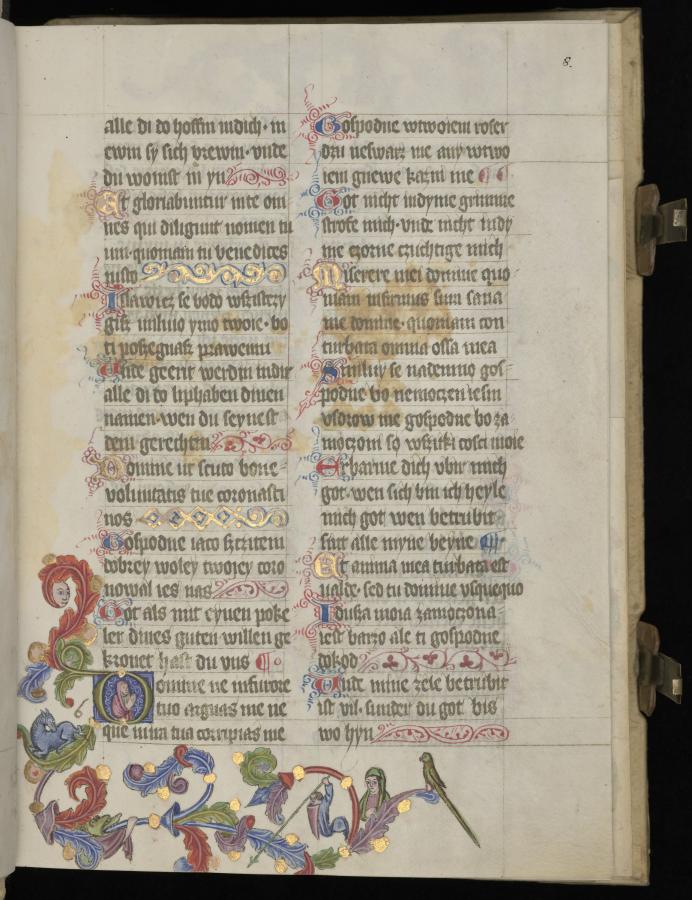 8.
alle di do hoffin indich· in
ewin sy sich vrewin· vnde
du wonist in yn
Et gloriabuntur in te om
nes qui diligunt nomen tu
um· quoniam tu benedices
iusto
I slawicz se bødø wszistczy
gisz miluiø ymø twoie· bo
ti poszegnasz prawemu
Vnde geerit werdin indir
alle di do liphaben dinen
namen· wen du seynest
dem gerechten
Domine ut scuto bone
voluntatis tue coronasti
nos
Gospodne iaco sczitem
dobrey woley twoiey coro
nowal ies nas
Got als mit eynen poke
ler dines guten willen ge
kronet hast du vns
Domine ne in furore
tuo arguas me ne
que in ira tua corripias me
Gospodne w twoiem roser
dzu nefwarz me any w two
iem gnewe karzi me
Got nicht in dyme grimme
strofe mich· vnde nicht in dy
me czorne czuchtige mich
Miserere mei domine quo
niam infirmus sum sana
me domine· quoniam con
turbata omnia ossa mea
Smiluy se nademnø gos
podne bo nemoczen iesm
vsdrow me gospodne bo za
møczoni sø wszitki cosci moie
Erbarme dich vbir mich
got· wen sich bin ich
mich got wen betrubit
sint alle myne beyne
Et anima mea turbata est
valde· sed tu domine vsquequo
I dusza moia zamøczona
iest barzo ale ti gospodne
dokød
Vnde mine zele betrubit
ist vil· sunder du got bis
wo hyn